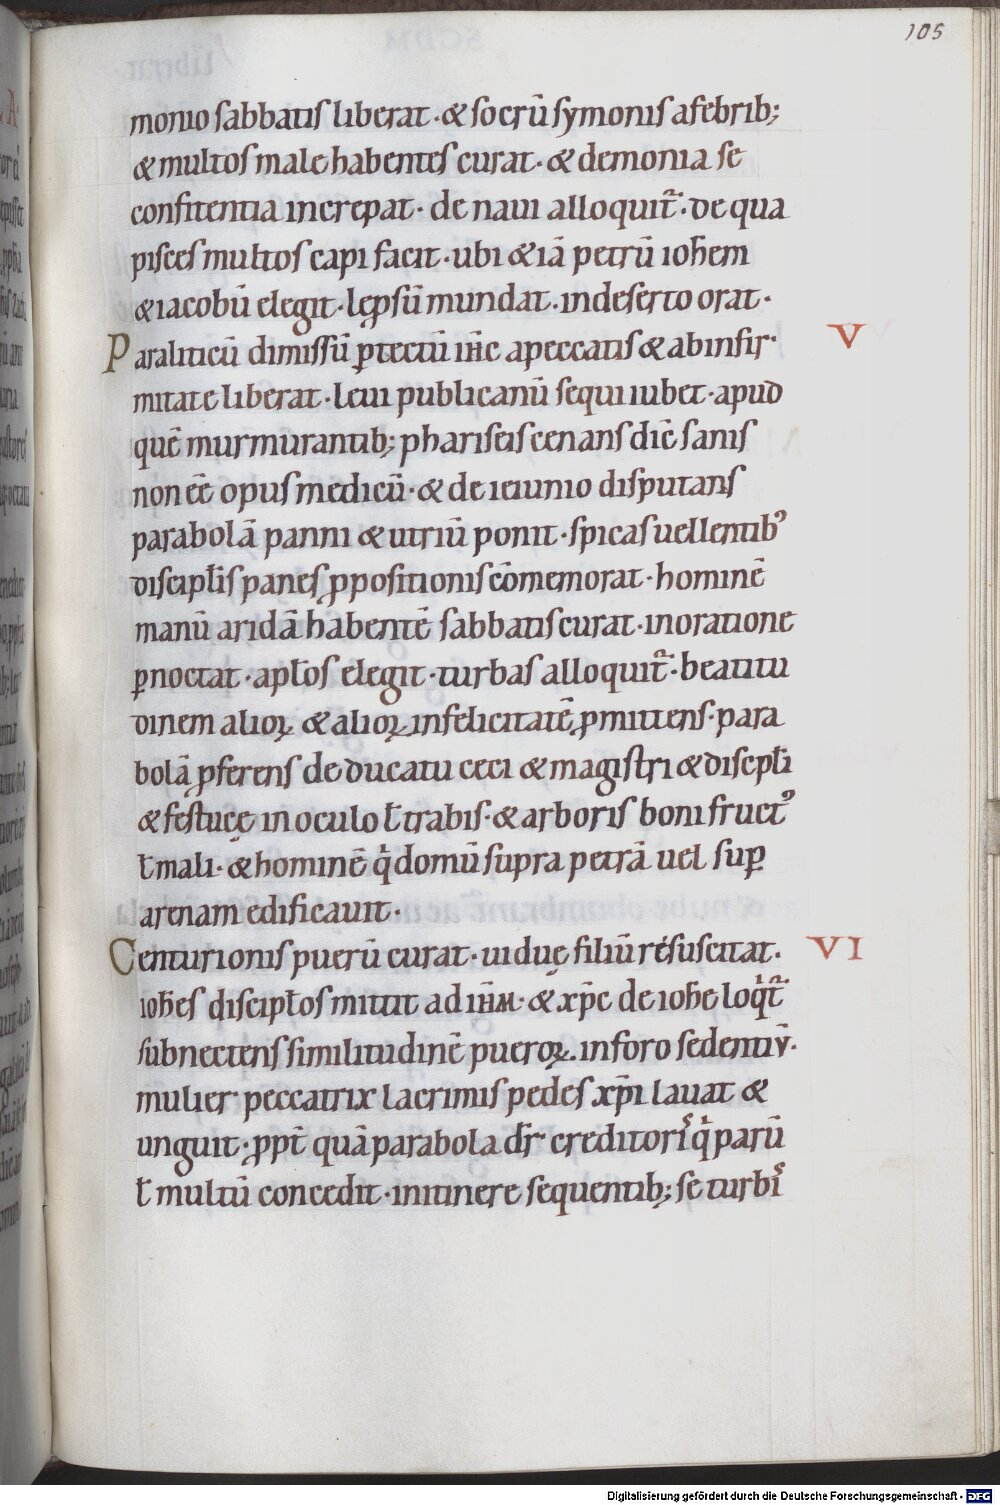 105
monio sabbatis liberat · & socrū symonis afebrib;
& multos male habentes curat · & demonia se
confitentia increpat · de naui alloquit᷑ · de qua
pisces multos capi facit · ubi & iā petrū ioh̄em
& iacobū elegit · lep̱sū mundat · indeserto orat ·
Paraliticū dimissū ꝑtectū ih̄c apeccatis & abinfir· V
mitate liberat · leui publicanū sequi iubet · apud
quē murmurantib; phariseis cenans diē sanis
non eē opus medicū · & de ieiunio disputans
parabolā panni & utriū ponit · spicas uellentibꝰ
discipl̄is panes ꝓpositionis cōmemorat · hominē
manū aridā habentē sabbatis curat · inoratione
ꝑnoctat · apl̄os elegit · turbas alloquit᷑ · beatitu
dinem alioꝝ & alioꝝ infelicitatē ꝓmittens · para
bolā ꝓferens de ducatu ceci & magistri & discipl̄i
& festucę in oculo ł trabis · & arboris boni fructꝰ
ł mali · & hominē q̇ domū supra petrā uel suꝑ
arenam edificauit ·
Centurionis puerū curat · uiduę filiū resuscitat · VI
ioh̄es discipl̄os mittit ad ih̄m · & xp̄c de ioh̄e loq̇t᷑
subnectens similitudinē pueroꝝ in foro sedentiū ·
mulier peccatrix lacrimis pedes xp̄i lauat &
unguit · ꝓpt̄ quā parabola dr̄ creditoris q̇ parū
ł multū concedit · initinere sequentib; se turbis
Digitalisierung gefördert durch die Deutsche Forschungsgemeinschaft - DFG